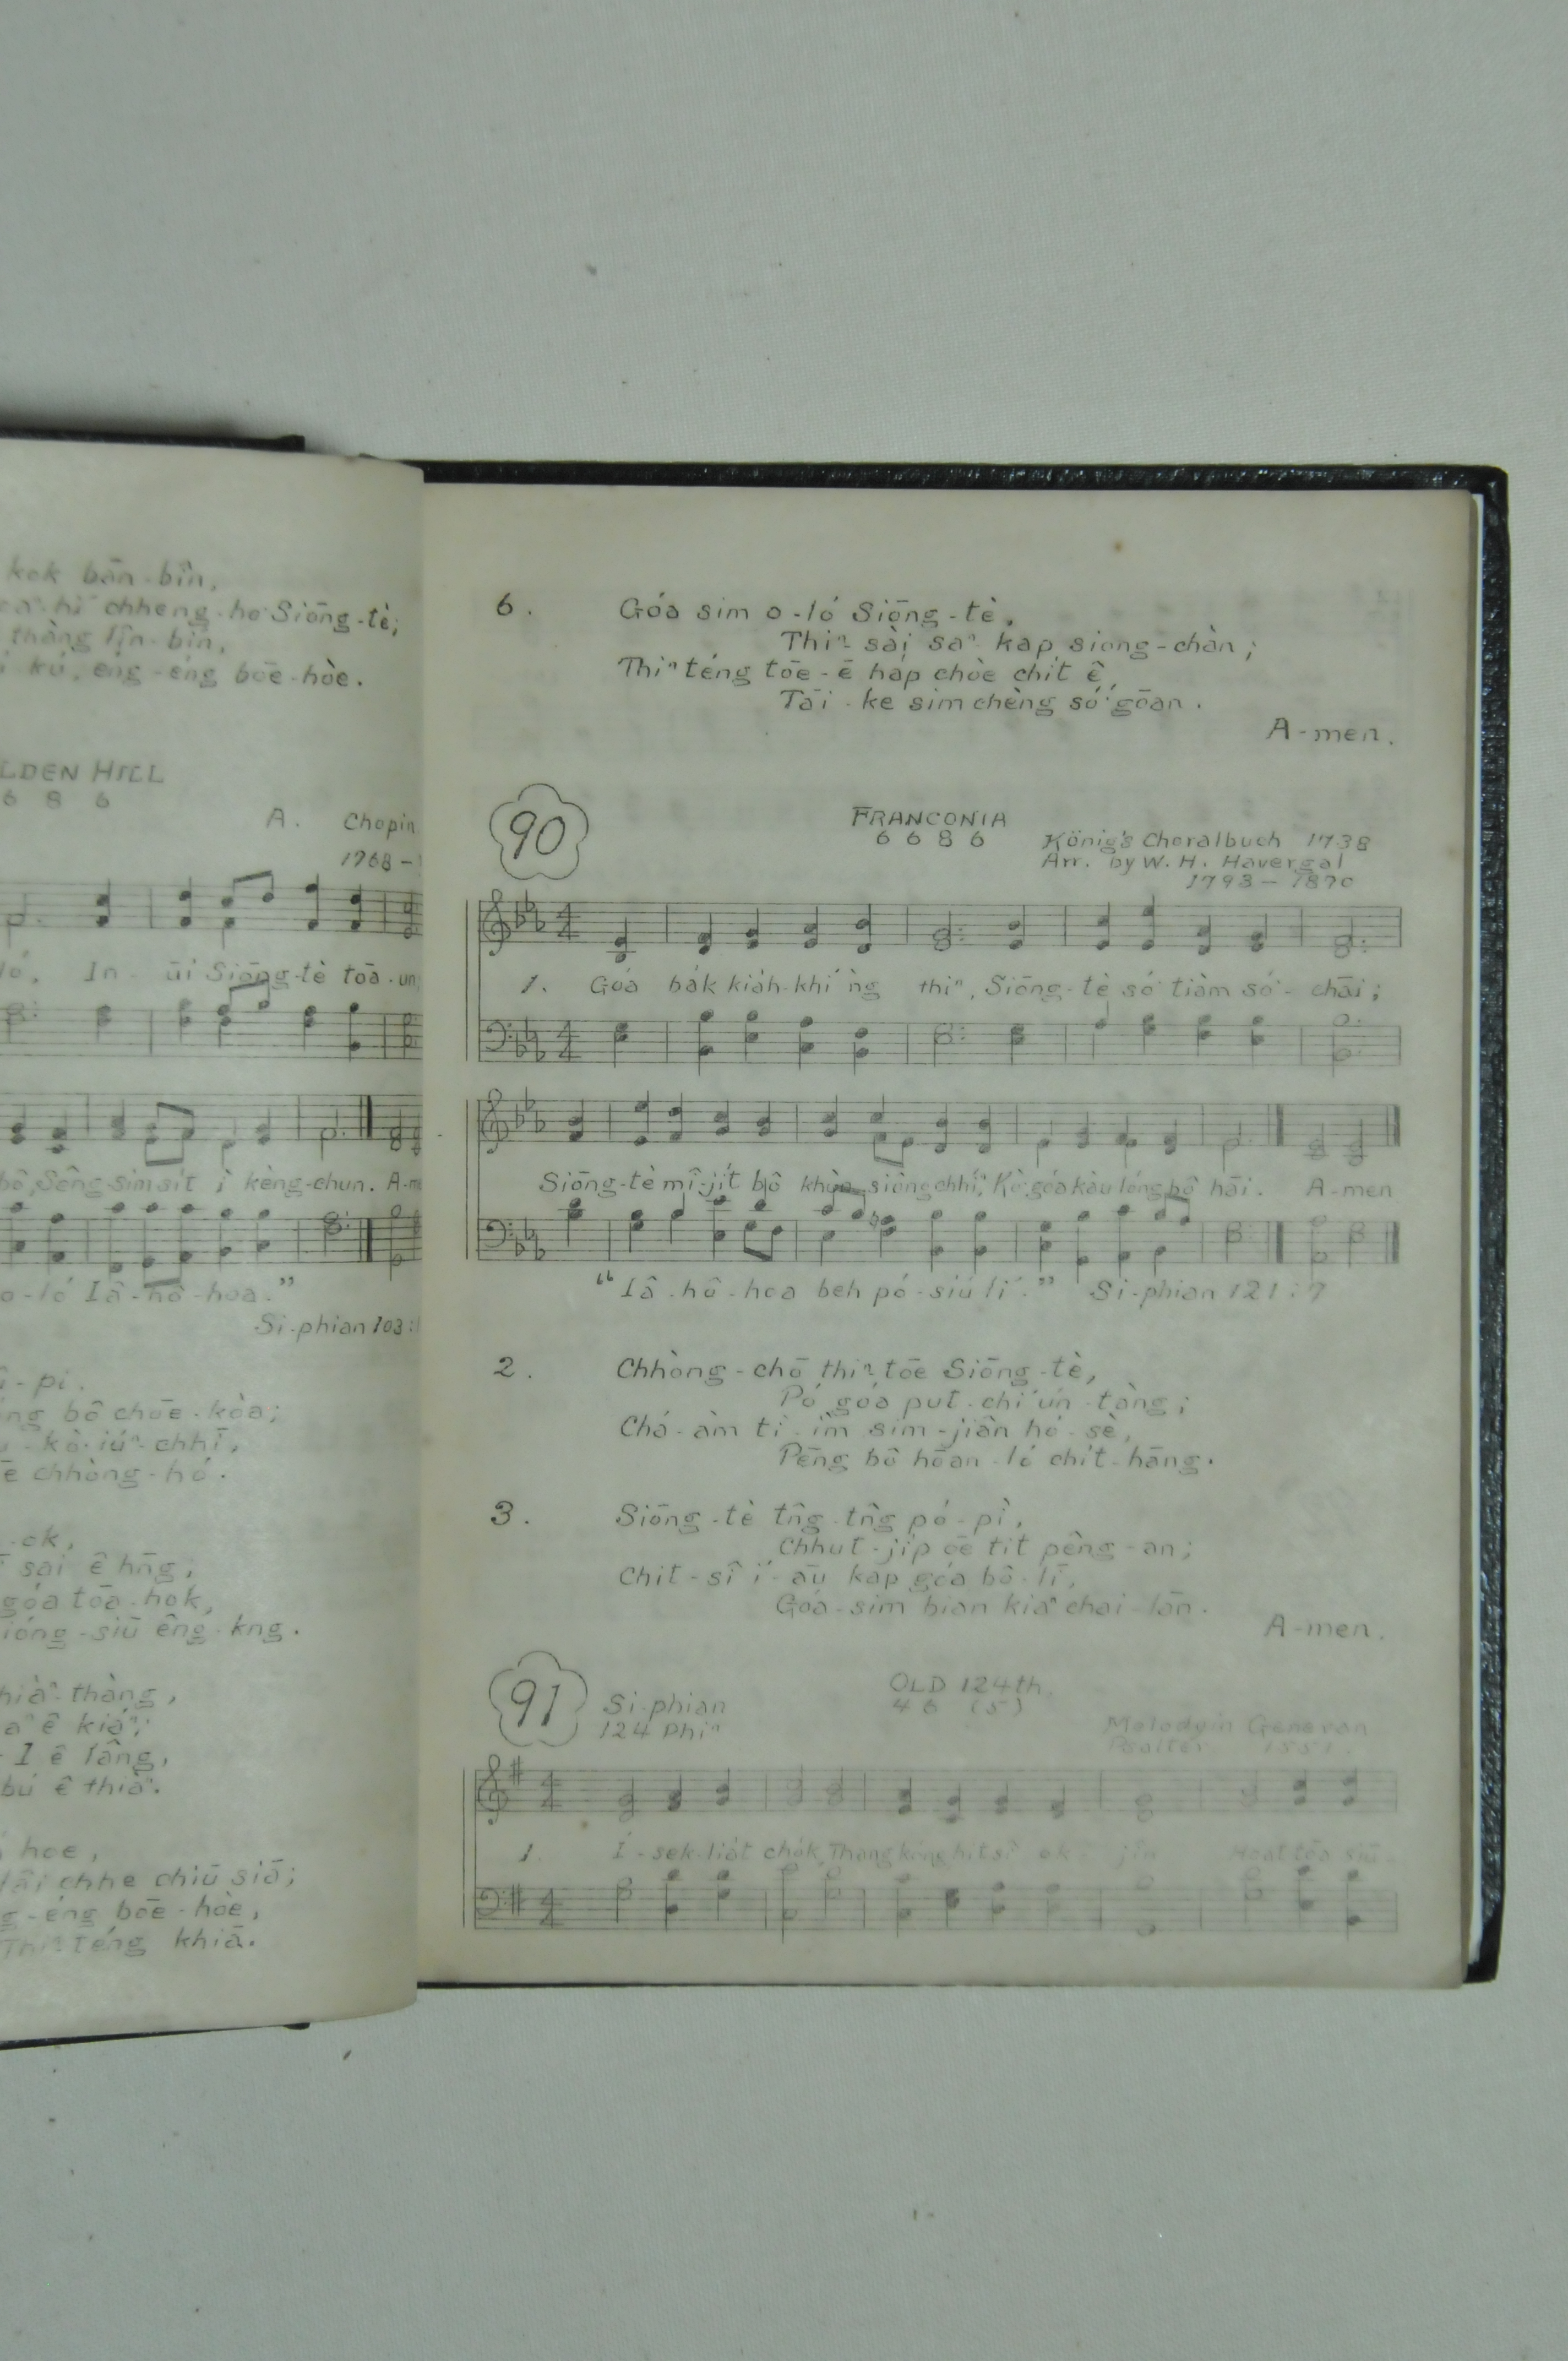 kok bān-bîn,
chheng-ho Siōng-tè;
thàng līn-bín,
kú, éng-éng bōe-hòe.
LDEN HILL
6 8 6
A. Chapin
1768 –
ló, In ūi Siōng-tè toā-un
bô, Sêng-sim sit i kèng-chun. A-m
o-ló Iâ-hô-hoa.”
Si-phian 103:
- pi.
bô chōe-kòa;
- kò-iúⁿ-chhī,
chhòng-hó.
- ok,
sai ê hn̄g;
góa tōa-hok,
ióng-siū êng-kng.
thàng,
ê kiáⁿ;
- I ê lâng,
bú ê thiàⁿ.
hoe,
lâi chhe chiū siā;
éng bōe-hòe,
Thiⁿ-téng khiā.
6. Góa sim o-ló Siōng-tè,
Thiⁿ-sài saⁿ-kap siong-chàn;
Thiⁿ téng tōe-ē háp chòe chit ê,
Tāi-ke sim chèng só͘ goān.
A-men.
90 FRANCONIA
6 6 8 6
König's Choralbuch 1738
Arr. by W. H. Havergal
1793 – 1870
1. Góa bák kiáh-khí ǹg thiⁿ, Siōng-tè só͘ tiàm só͘-chāi;
Siōng-tè mî-jít bô khùn, siông chhíⁿ, Kò͘ góa kàu lóng bô hāi. A-men
“Iâ-hô-hoa beh pó-siú lí.” Si-phian 121:7
2. Chhòng-chō thiⁿ tōe Siōng-tè,
Pó góa put-chí ún-tàng;
Chá-àm tì-ìm sim-jiân hó-sè,
Pēng bô hōan-ló chit-hāng.
3. Siōng-tè tn̂g-tn̂g pó-pì,
Chhut-jíp ōe tit pêng-an;
Chit-sî í-āu kap góa bô-lī,
Góa-sim bian kiaⁿ chai-lān.
A-men.
91 Si-phian
124 Phiⁿ
OLD 124th
4 6 (5)
Melody in Genevan
Psalter 1551.
1. Í-sek-liát chók, Thang kóng hit sî ok-jîn Hoat tōa siū-